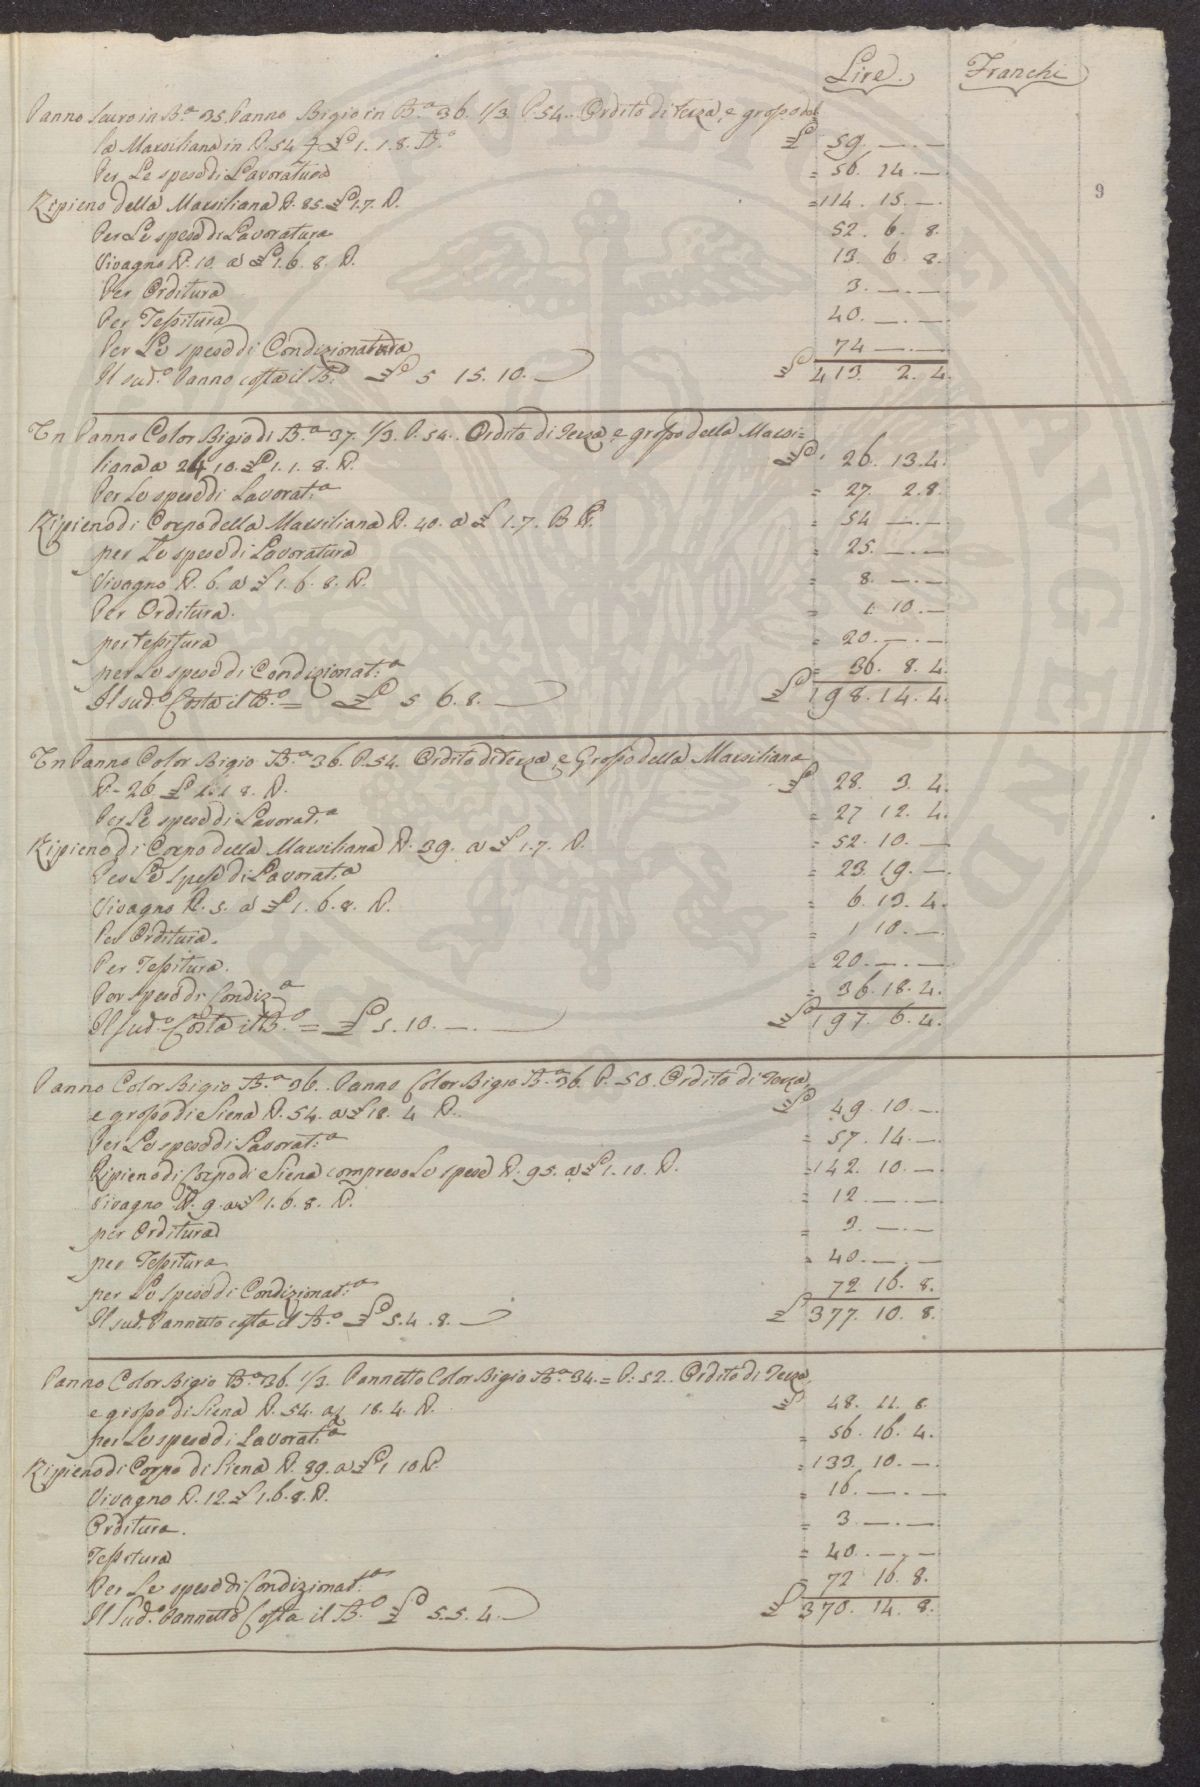 Lire. Franchi
9
Panno Scuro in B.a 35. Panno Bigio in B.a 36. 1/3. P. 54.. Ordito di Terza, e grosso del
la Marsiliana in P. 54 £ 1. 1. 8. £ 59. — . —
Per Le spese di Lavoratura = 56. 14. —
Ripieno della Marsiliana P. 85. £ 1. 7. P. = 114. 15. —
Per Le spese di Lavoratura 52. 6. 8.
Vivagno P. 10. a £ 1. 6. 8. P. 13. 6. 8.
Per Orditura 3. — . —
Per Tessitura 40. — . —
Per Le spese di Condizionatura 74 — . —
Il sud.o Panno costa il B.o £ 5 15. 10. — £ 413. 2. 4.
Un Panno Color Bigio di B.a 37. 1/3. P. 54.. Ordito di Terza, e grosso della Marsi=
liana a 24 10. £ 1. 1. 8. P. £ 26. 13. 4.
Per Le spese di Lavorat.a = 27. 2. 8.
Ripieno di Corpo della Marsiliana P. 40. a £ 1. 7. P. = 54 — . —
per Le spese di Lavoratura = 25. — . —
Vivagno P. 6. a £ 1. 6. 8. P. = 8. — . —
Per Orditura. 1. 10. —
per tessitura = 20. — . —
per Le spese di Condizionat.a = 36. 8. 4.
Il sud.o Costa il B.o = £ 5 6. 8. — £ 198. 14. 4.
Un Panno Color Bigio B.a 36. P. 54. Ordito di Terza, e Grosso della Marsiliana
P. 26 £ 1. 1 8. P. £ 28. 3. 4.
Per Le spese di Lavorat.a = 27 12. 4.
Ripieno di Corpo della Marsiliana P. 39. a £ 1. 7. P. = 52. 10. —
Per Le Spese di Lavorat.a = 23. 19. —
Vivagno P. 5. a £ 1. 6. 8. P. = 6. 13. 4.
Per Orditura. = 1 10. —
Per Tessitura. = 20. — . —
Per spese di Condiz.a = 36. 18. 4.
Il sud.o Costa il B.o = £ 5. 10. — . — £ 197. 6. 4.
Panno Color Bigio B.a 36.. Panno Color Bigio B.a 36. P. 50. Ordito di Terza,
e grosso di Siena P. 54. a £ 18. 4 P. £ 49. 10. —
Per Le spese di Lavorat.a = 57. 14. —
Ripieno di Corpo di Siena compreso Le spese P. 95. a £ 1. 10. P. = 142. 10. —
Vivagno P. 9. a £ 1. 6. 8. P. = 12 — . —
per Orditura = 3. — . —
per Tessitura = 40. — . —
per Le spese di Condizionat.a 72 16. 8.
Il sud.o Pannetto costa il B.o £ 5. 4. 8. — £ 377. 10. 8.
Panno Color Bigio B.a 36. 1/3. Pannetto Color Bigio B.a 34. = P. 52.. Ordito di Terza,
e grosso di Siena P. 54. a £ 18. 4. P. £ 48. 11. 8.
per Le spese di Lavorat.a = 56. 16. 4.
Ripieno di Corpo di Siena P. 89. a £ 1 10 P. = 133. 10. —
Vivagno P. 12. £ 1. 6. 8. P. = 16. — . —
Orditura. = 3. — . —
Tessitura = 40. — . —
Per Le spese di Condizionat.a = 72 16. 8.
Il Sud.o Pannetto Costa il B.o £ 5. 5. 4. — £ 370. 14. 8.